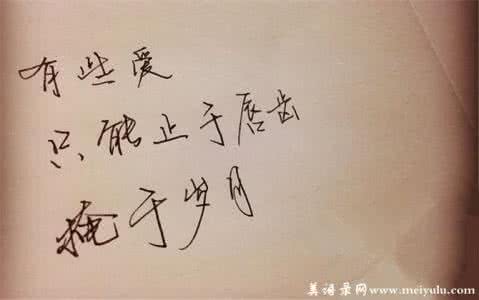 有些爱
只能止于唇齿
掩于岁月
美语录网www.meiyulu.com